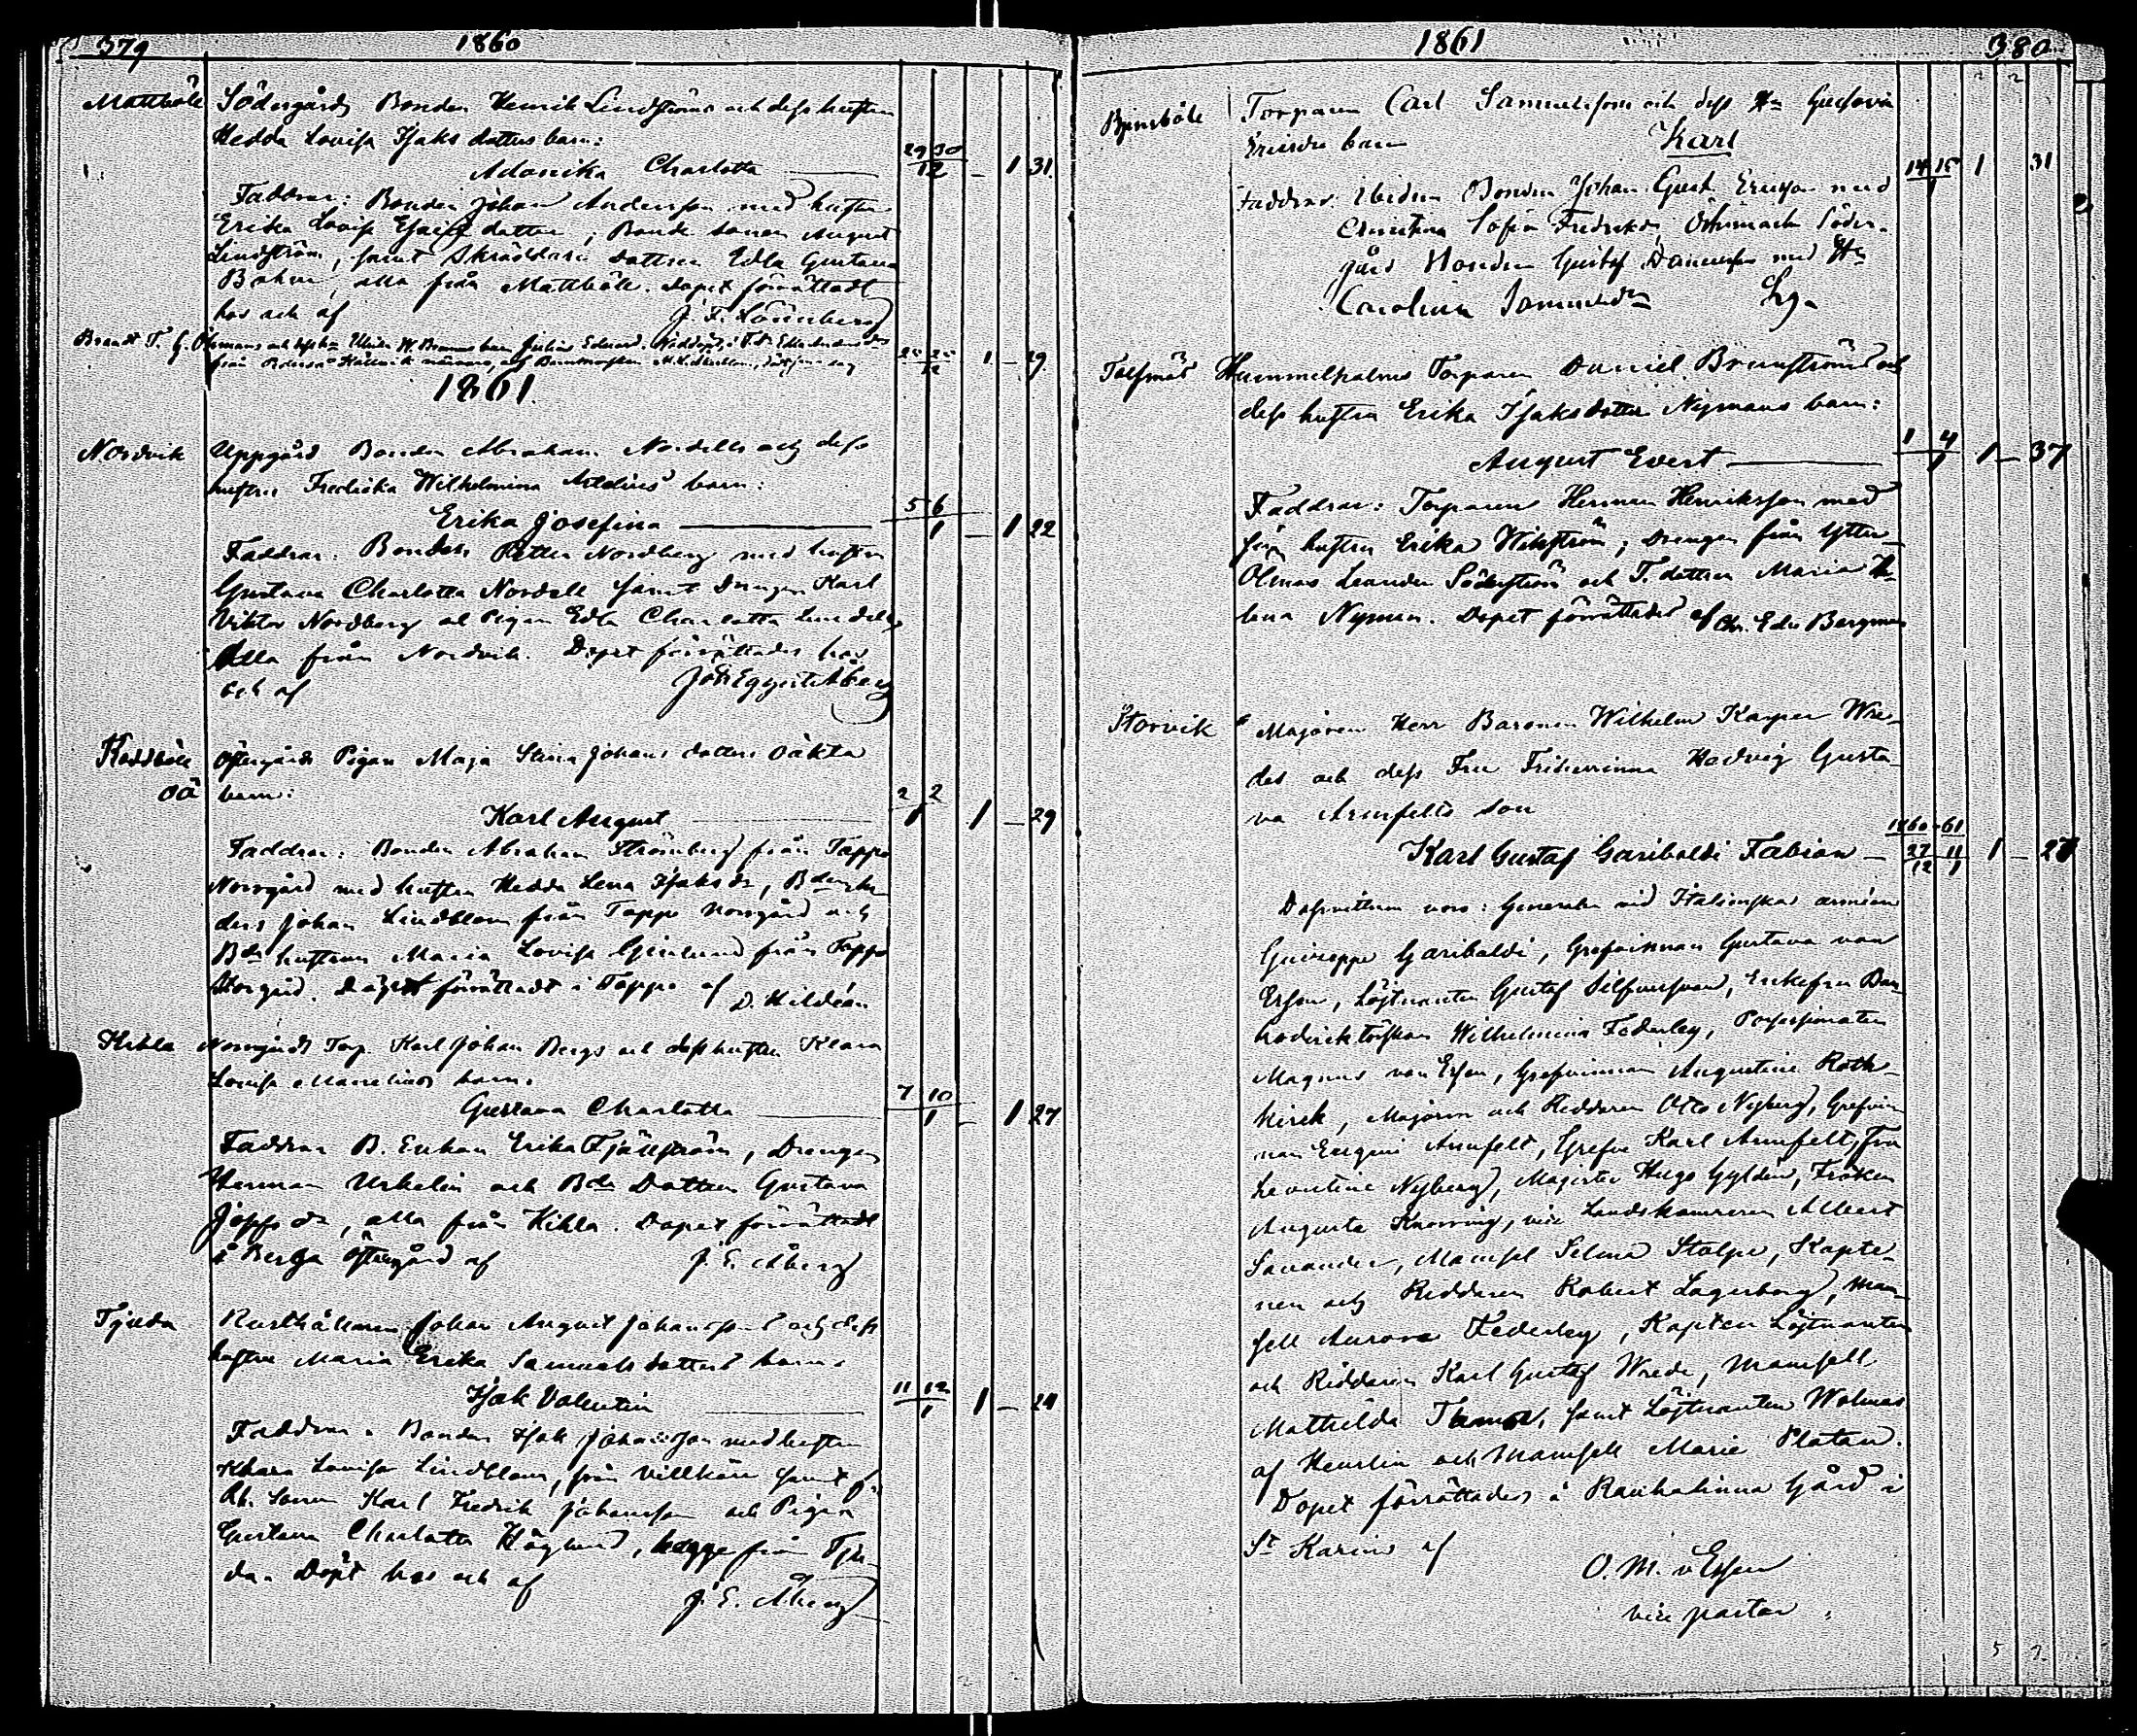 379
1860
Mattböle Södergårds Bonden Henrik Lindströms och dess hustrus
Hedda Lovisa Isaks dotters barn:
Charlotta 29 30 / 12 — 1 31.
Faddrar: Bonden Johan Andersson med hustru
Erika Lovisa dotter; Bonde sonen August
Lindström, samt Skräddare dottren Edla Gustava
alla från Mattböle. Dopet förrättadt
hos och af J. F.
Brandt T. G. Öhmans och Julius Eduard. 1 — 29
från
1861.
Nordvik Uppgård Bonden Abraham Nordells och dess
hustru Fredrika Wilhelmina barn:
Erika Josefina 5 6 / 1 — 1 22
Faddrar: Bonden Petter Nordberg med hustru
Gustava Charlotta Nordell samt Drengen Karl
Viktor Nordberg och Pigan Edla Charlotta
Alla från Nordvik. Dopet förrättades hos
och af Joh Eggert Åberg
Östergårds Pigan Maja Stina Johans dotters oäkta
oä barn:
Karl August 2 2 / 1 1 — 29
Faddrar: Bonden Abraham Strömberg från Tappo
Norrgård med hustru Hedda Lena Isaks dr,
Johan Lindblom från Tappo Norrgård och
Bde hustrun Maria Lovisa från Tappo
förrättadt i Tappo af D. Hildéen
Kihla Norrgårds Torp. Karl Johan Bergs och dess hustru Klara
Lovisa barn.
Gustava Charlotta 7 10 / 1 — 1 27
Faddrar B. Enkan Erika Fjällström, Drengen
Herman och Bde Dottren Gustava
dr, alla från Kihla. Dopet förrättadt
å Berga Östergård af J. E. Åberg
Tjuda Rusthållaren Johan August Johanssons och dess
hustru Maria Erika Samuels dotters barn.
Isak Valentin 11 12 / 1 1 — 24
Faddrar: Bonden Isak Johansson med hustru
Klara Lovisa Lindblom, från Villkärr samt
Rh. Sonen Karl Fredrik Johansson och Pigan
Gustava Charlotta Höglund, begge från Tju-
da. Döpt hos och af J. E. Åberg
1861
380
Torparen Carl Samuelsson och dess Hu Gustava
barn Karl 14 15 / 1 1 31
Faddrar Bonden Johan Gust. Ericsson med
Christina Sofia Fredriksdr, Östermark Söder-
gård Bonden Gustaf med Hu
Carolina
Hummelholms Torparen Daniel Brunströms och
dess hustru Erika Isaksdotter Nymans barn:
August Evert 1 4 / 1 1 — 37
Faddrar: Torparen Herman Henriksson med
sin hustru Erika Wikström; Drengen från Ytter-
Ölmos Leander Söderström och T. dottren Maria He-
lena Nyman. Dopet förrättades af Chr. Edv. Bergman
Storvik Majoren Herr Baronen Wilhelm Kasper Wre-
des och dess Fru Friherrinna Hedvig Gusta-
va Armfelts son
Karl Gustaf Garibaldi Fabian — 1860-61 / 27 11 / 12 1 1 — 27
Dopvittnen voro: Generalen vid Italienska arméen
Guiseppe Garibaldi, Grefvinnan Gustava von
Essen, Löjtnanten Gustaf Silfversvan, Enkefru Ban-
kodirektörskan Wilhelmina Federley, Possessionaten
Magnus von Essen, Grefvinnan Augustine Roth-
kirck, Majoren och Riddaren Otto Nyberg, Grefvin-
nan Eugini Armfelt, Grefve Karl Armfelt, Fru
Leontine Nyberg, Magister Hugo Gyldén, Fröken
Augusta Knorring, vice Landskamreraren Albert
Savander, Mamsel Selma Stolpe, Kapte-
nen och Riddaren Robert Lagerborg, Mam-
sell Aurora Federley, Kapten Löjtnanten
och Riddaren Karl Gustaf Wrede, Mamsell
Mathilda samt Löjtnanten Wolmar
af Heurlin och Mamsell Marie Platan.
Dopet förrättades å Rauhalinna Gård i
St Karins af
O. M. v Essen
vice pastor.